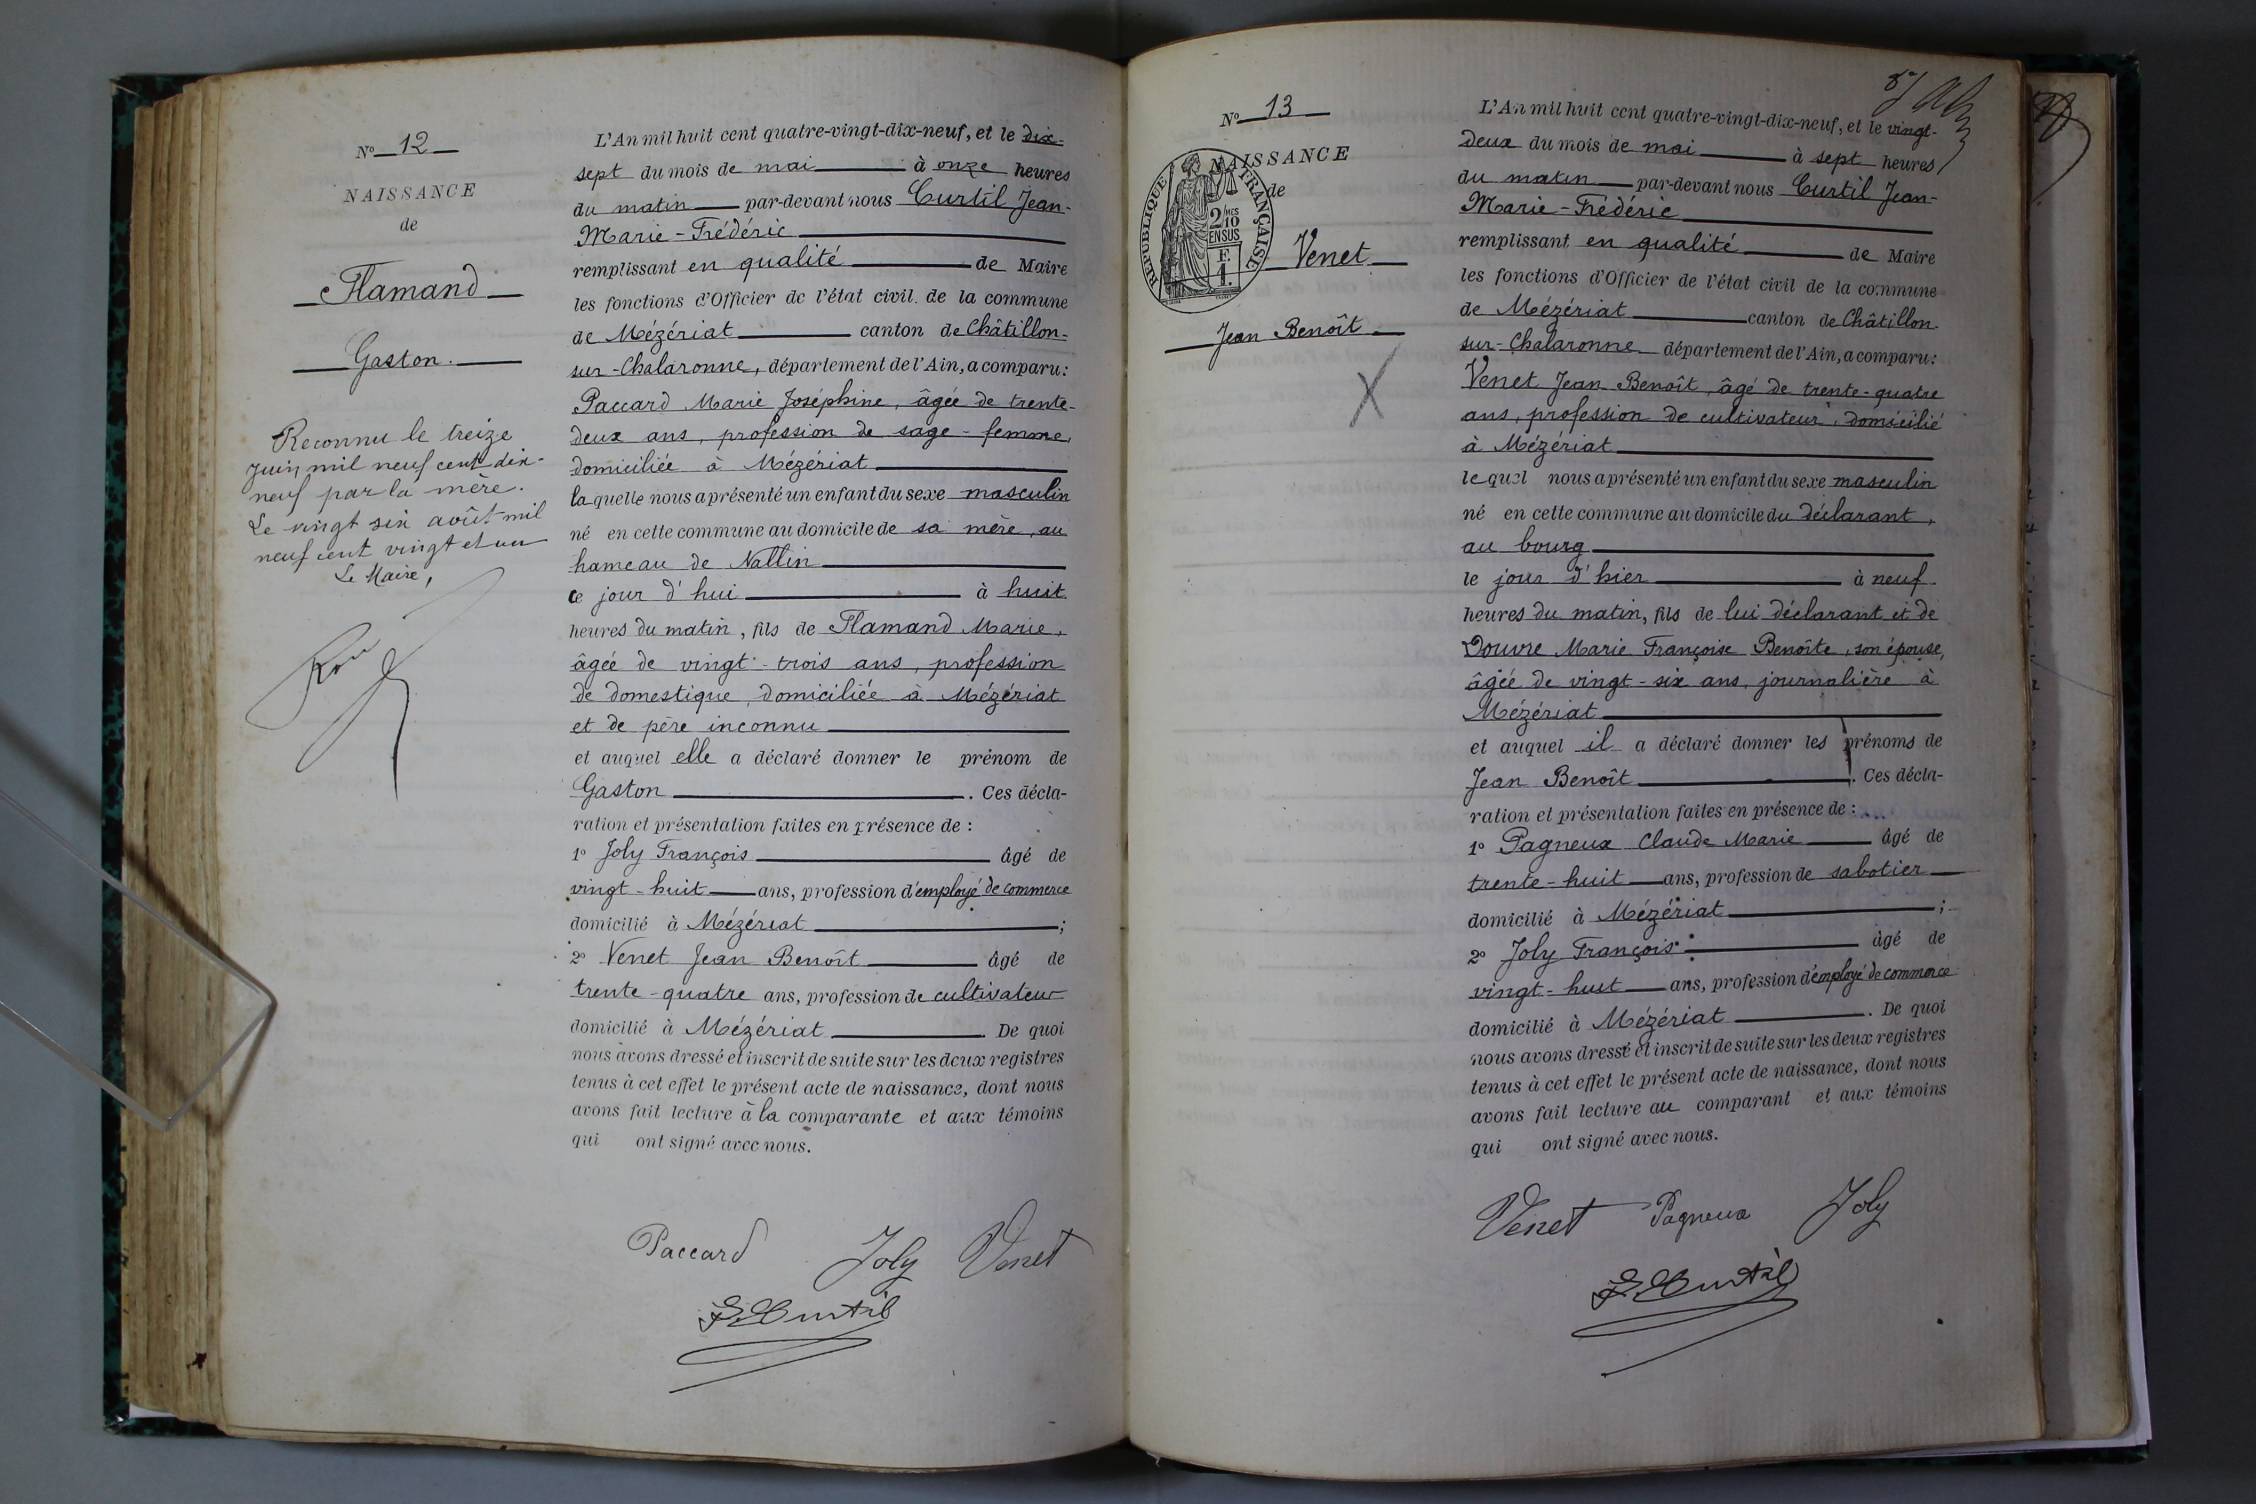 N° 12
NAISSANCE
de
Flamand
Gaston.
Reconnu le treize
Juin mil neuf cent dix-
neuf par la mère.
Le vingt six août mil
neuf cent vingt et un
Le Maire,
L'An mil huit cent quatre-vingt-dix-neuf, et le dix-
sept du mois de mai à onze heures
du matin par-devant nous Curtil Jean-
Marie-Frédéric
remplissant en qualité de Maire
les fonctions d'Officier de l'état civil de la commune
de Mézériat canton de Châtillon-
sur-Chalaronne, département de l'Ain, a comparu:
Paccard Marie Joséphine, âgée de trente-
deux ans, profession de sage-femme,
domiciliée à Mézériat
laquelle nous a présenté un enfant du sexe masculin
né en cette commune au domicile de sa mère, au
hameau de Nallin
ce jour d'hui à huit
heures du matin, fils de Flamand Marie,
âgée de vingt-trois ans, profession
de domestique, domiciliée à Mézériat
et de père inconnu
et auquel elle a déclaré donner le prénom de
Gaston . Ces décla-
ration et présentation faites en présence de :
1° Joly François âgé de
vingt-huit ans, profession d'employé de commerce
domicilié à Mézériat ;
2° Venet Jean Benoît âgé de
trente-quatre ans, profession de cultivateur
domicilié à Mézériat De quoi
nous avons dressé et inscrit de suite sur les deux registres
tenus à cet effet le présent acte de naissance, dont nous
avons fait lecture à la comparante et aux témoins
qui ont signé avec nous.
Paccard Joly Venet
F. Curtil
N° 13
NAISSANCE
de
RÉPUBLIQUE FRANÇAISE
2/10
EN SUS
F.
1.
Venet
Jean Benoît
X
L'An mil huit cent quatre-vingt-dix-neuf, et le vingt-
deux du mois de mai à sept heures
du matin par-devant nous Curtil Jean-
Marie-Frédéric
remplissant en qualité de Maire
les fonctions d'Officier de l'état civil de la commune
de Mézériat canton de Châtillon-
sur-Chalaronne département de l'Ain, a comparu:
Venet Jean Benoît, âgé de trente-quatre
ans, profession de cultivateur, domicilié
à Mézériat
lequel nous a présenté un enfant du sexe masculin
né en cette commune au domicile du déclarant,
au bourg
le jour d'hier à neuf
heures du matin, fils de lui déclarant et de
Douvre Marie Françoise Benoîte, son épouse,
âgée de vingt-six ans, journalière à
Mézériat
et auquel il a déclaré donner les prénoms de
Jean Benoît . Ces décla-
ration et présentation faites en présence de :
1° Pagneux Claude Marie âgé de
trente-huit ans, profession de sabotier
domicilié à Mézériat ;
2° Joly François âgé de
vingt-huit ans, profession d'employé de commerce
domicilié à Mézériat . De quoi
nous avons dressé et inscrit de suite sur les deux registres
tenus à cet effet le présent acte de naissance, dont nous
avons fait lecture au comparant et aux témoins
qui ont signé avec nous.
Venet Pagneux Joly
F. Curtil